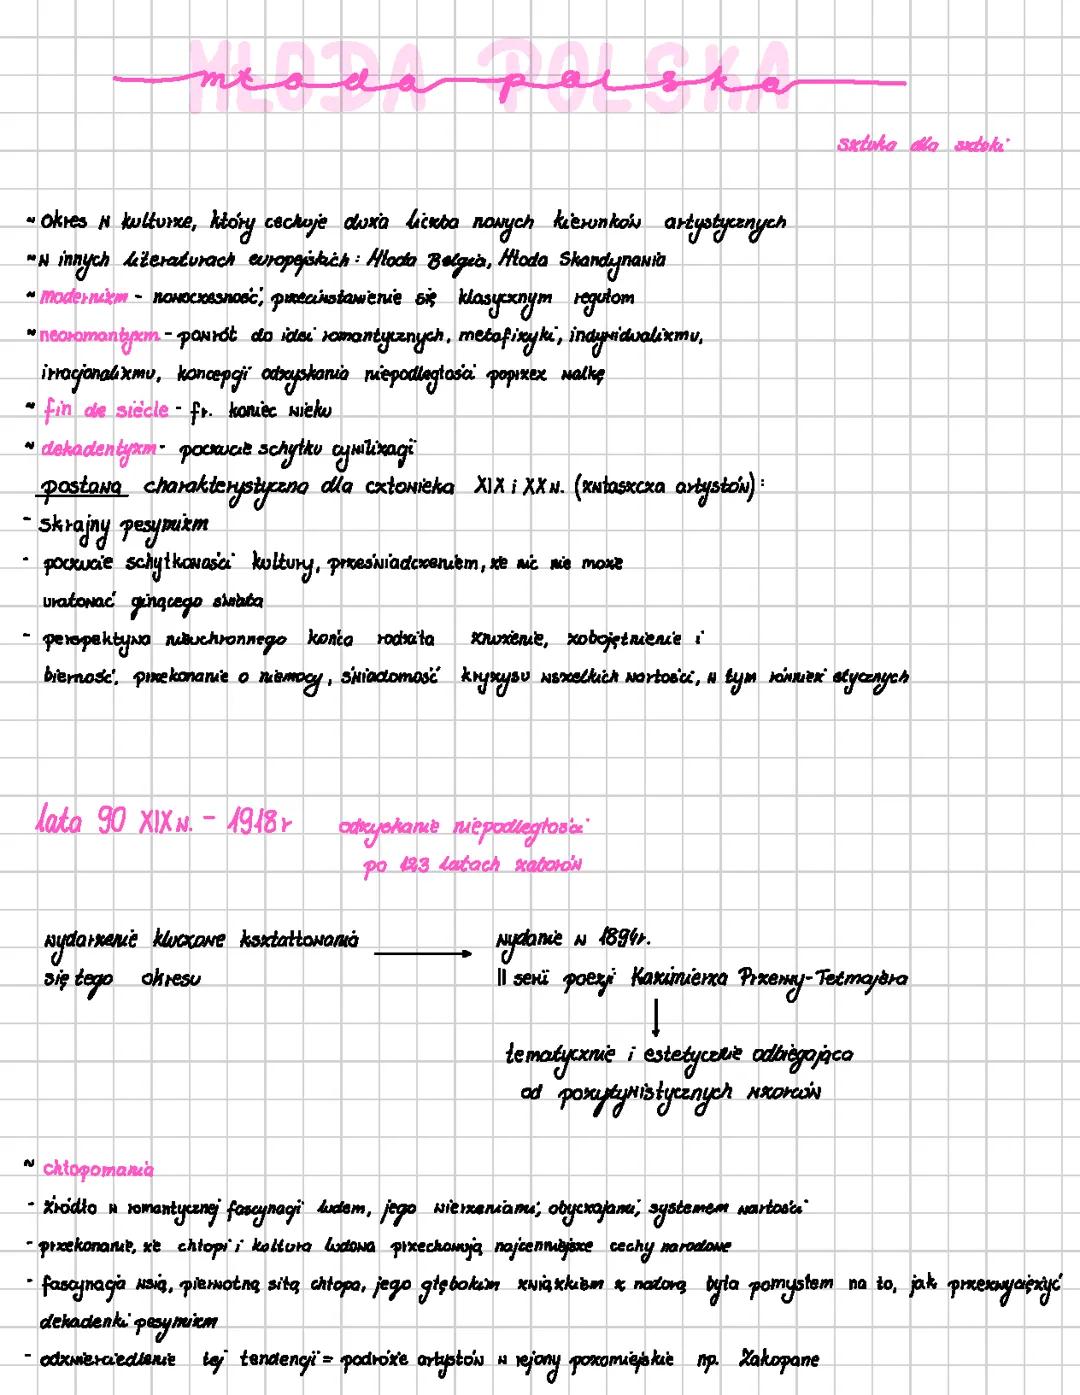 MŁODA POLSKA
młoda polska
sztuka dla sztuki
~ okres w kulturze, który cechuje duża liczba nowych kierunków artystycznych
~ w innych literaturach europejskich: Młoda Belgia, Młoda Skandynawia
~ modernizm - nowoczesność, przeciwstawienie się klasycznym regułom
~ neoromantyzm - powrót do idei romantycznych, metafizyki, indywidualizmu,
irracjonalizmu, koncepcji odzyskania niepodległości poprzez walkę
~ fin de siècle - fr. koniec wieku
~ dekadentyzm - poczucie schyłku cywilizacji
postawa charakterystyczna dla człowieka XIX i XX w. (zwłaszcza artystów):
- skrajny pesymizm
- poczucie schyłkowości kultury, przeświadczeniem, że nic nie może
uratować ginącego świata
- perspektywa nieuchronnego końca rodziła znużenie, zobojętnienie i
bierność, przekonanie o niemocy, świadomość kryzysu wszelkich wartości, w tym również etycznych
lata 90 XIX w. - 1918r odzyskanie niepodległości
po 123 latach zaborów
wydarzenie kluczowe kształtowania
się tego okresu
wydanie w 1894r.
II serii poezji Kazimierza Przerwy-Tetmajera
tematycznie i estetycznie odbiegająca
od pozytywistycznych wzorców
~ chłopomania
- źródło w romantycznej fascynacji ludem, jego wierzeniami, obyczajami, systemem wartości
- przekonanie, że chłopi i kultura ludowa przechowują najcenniejsze cechy narodowe
- fascynacja wsią, pierwotną siłą chłopa, jego głębokim związkiem z naturą była pomysłem na to, jak przezwyciężyć
dekadencki pesymizm
- odzwierciedlenie tej tendencji = podróże artystów w rejony pozamiejskie np. Zakopane